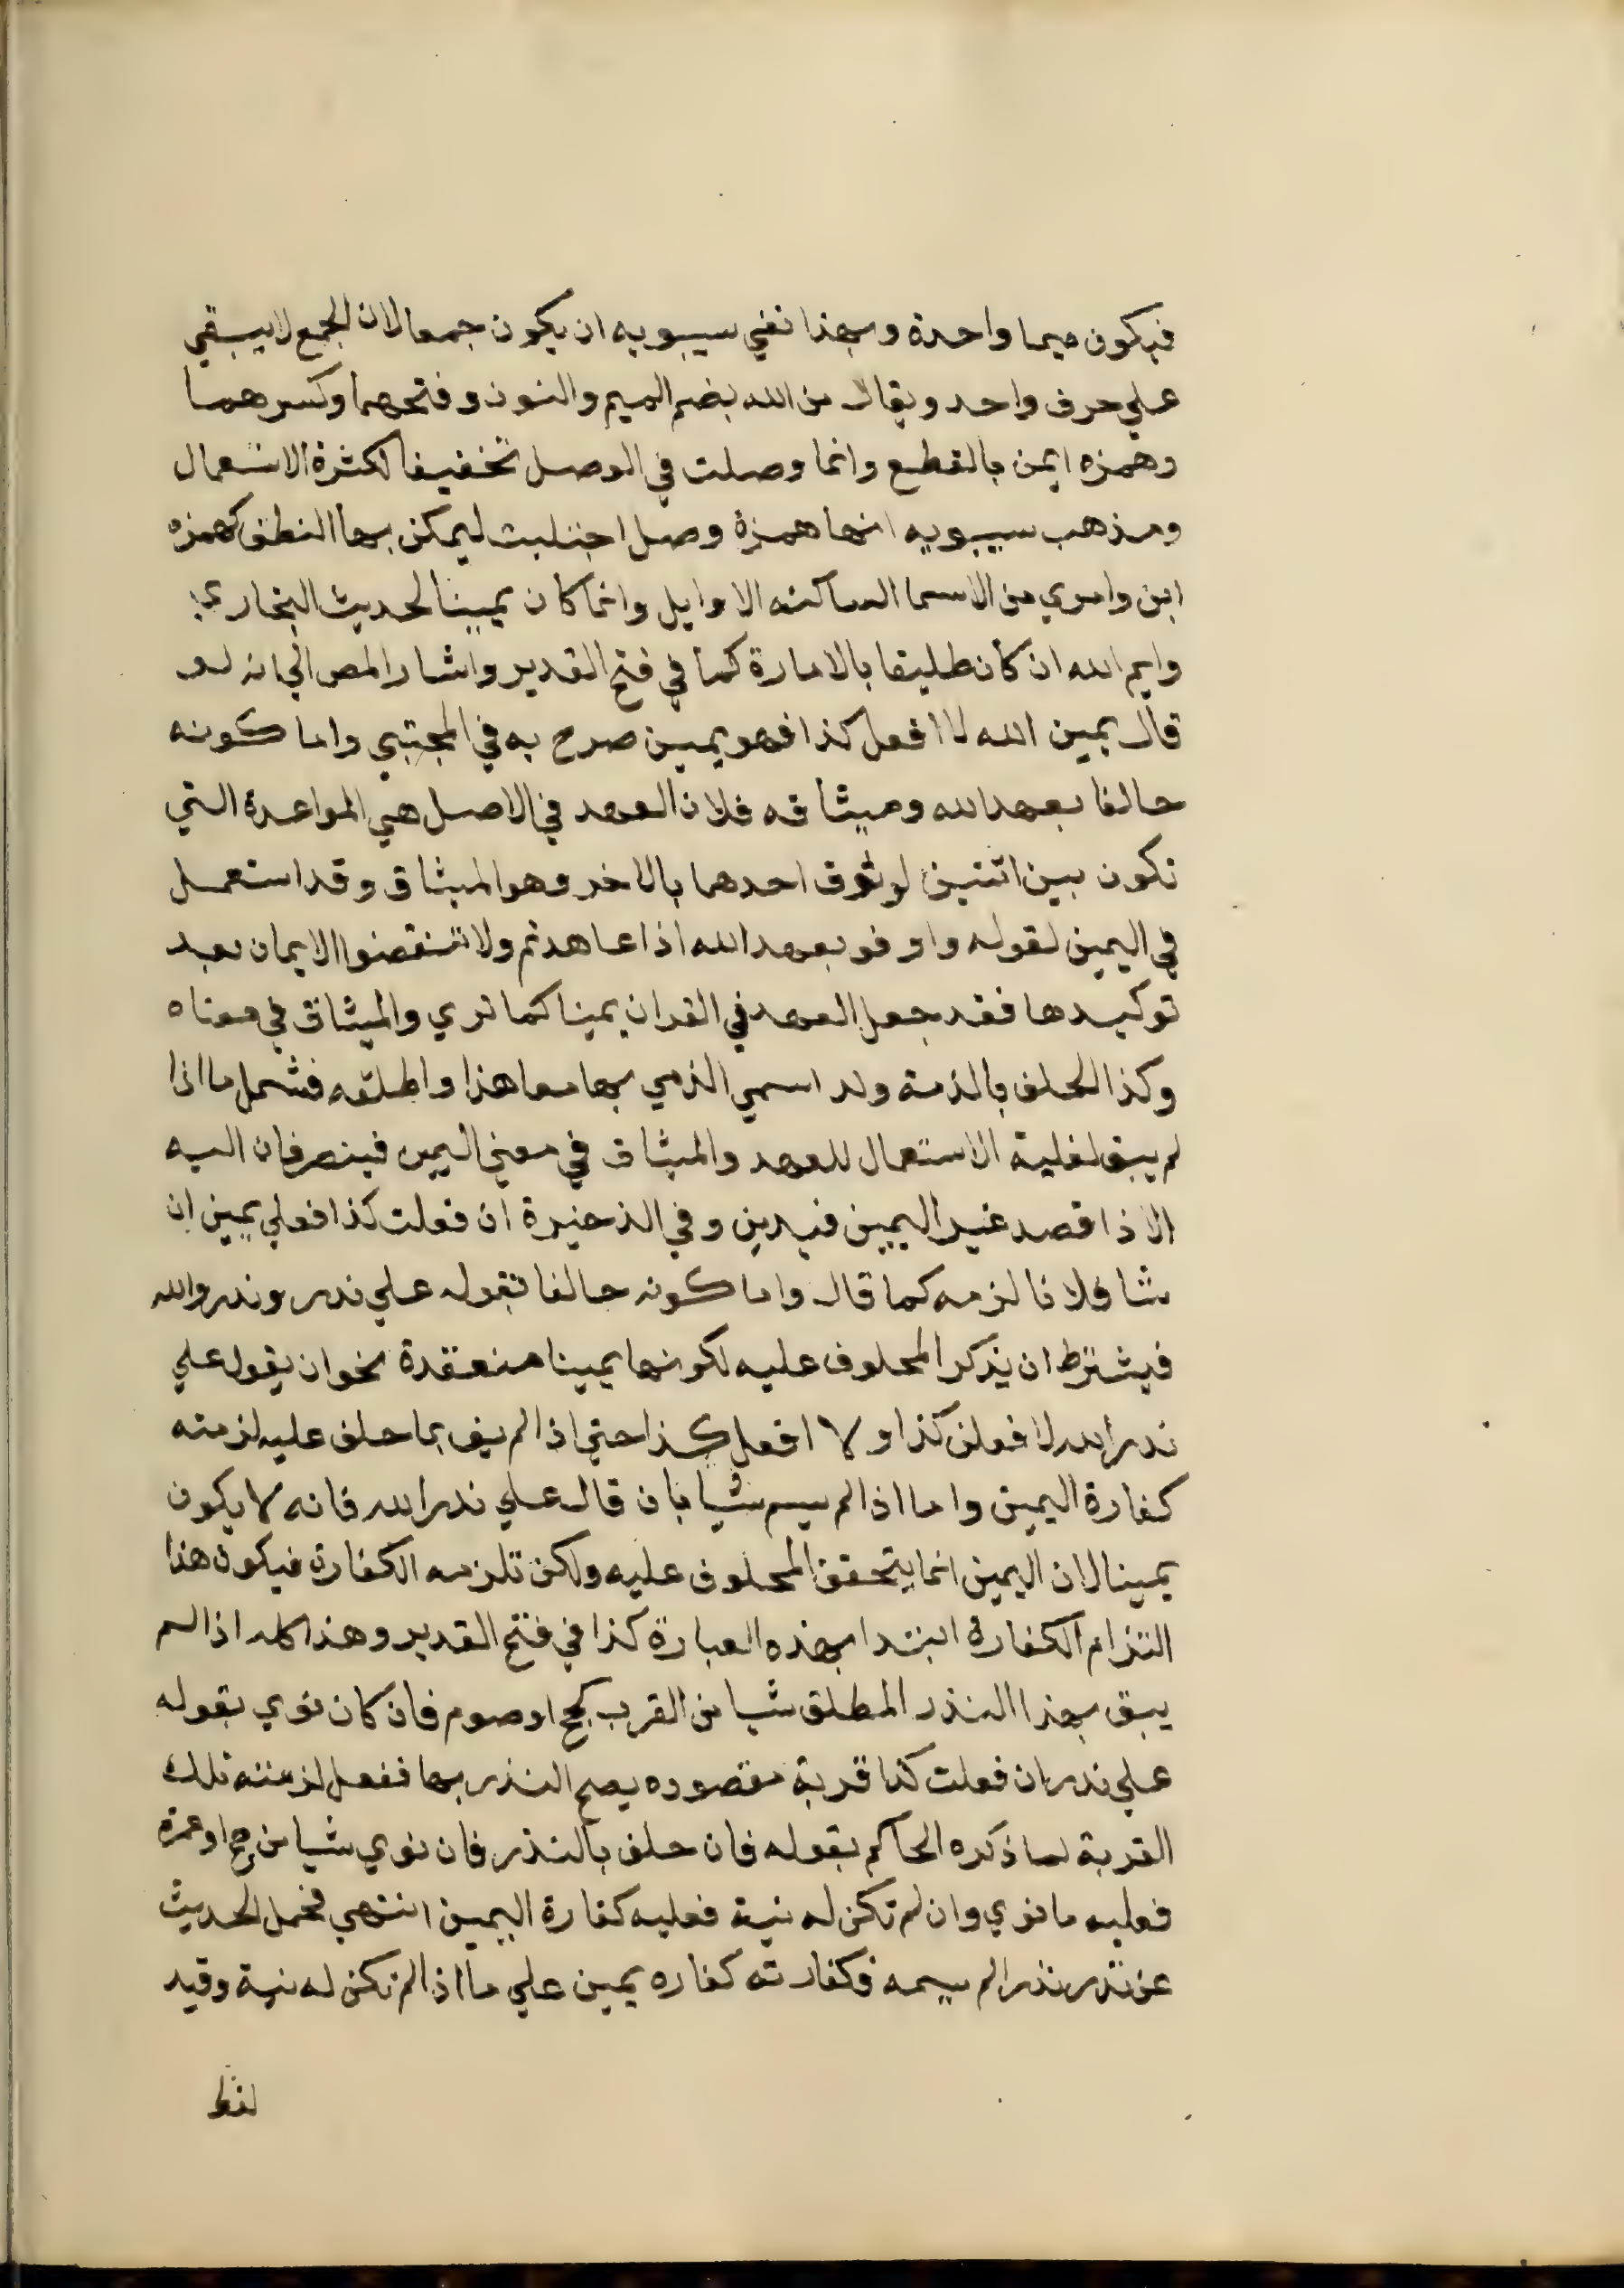 فيكون ميما واحدة وبهذا نفي سيبويه ان يكون جمعا لان الجمع لا يبقي
علي حرف واحد ويقال من الله بضم الميم والنون وفتحهما وكسرهما
وهمزه ايمن بالقطع وانما وصلت في الوصل تخفيفا لكثرة الاستعمال
ومذهب سيبويه انها همزة وصل اجتلبت ليمكن بها النطق كهمزه
ابن وامري من الاسما الساكنه الاوايل وانما كان يمينا لحديث البخاري
وايم الله ان كان خليقا بالامارة كما في فتح القدير واشار المص الي انه لو
قال يمين الله لا افعل كذا فهو يمين صرح به في المجتبي واما كونه
حالفا بعهد الله وميثاقه فلان العهد في الاصل هي المواعدة التي
تكون بين اثنين لوثوق احدهما بالاخر وهو الميثاق وقد استعمل
في اليمين لقوله واوفو بعهد الله اذا عاهدتم ولا تنقضوا الايمان بعد
توكيدها فقد جعل العهد في القران يمينا كما تري والميثاق في معناه
وكذا الحلف بالذمة ولد اسمي الذمي بها معاهذا واطلقه فشمل ما اذا
لم يبق لغلبة الاستعمال للعهد والميثاق في معني اليمين فينصرفان اليه
الا ذا قصد غير اليمين فيدين وفي الذخيرة ان فعلت كذا فعلي يمين ان
شا فلانا لزمه كما قال واما كونه حالفا بقوله علي نذر ونذر والله
فيشترط ان يذكر المحلوف عليه لكونها يمينا منعقدة نحو ان يقول علي
نذر الله لا فعلن كذا و لا افعل كذا حتي اذا لم يف بما حلف عليه لزمته
كفارة اليمين واما اذا لم يسم شيا بان قال علي نذر الله فانه لا يكون
يمينا لان اليمين انما يتحقق المحلوف عليه ولكن تلزمه الكفارة فيكون هذا
التزام الكفارة ابتدا بهذه العبارة كذا في فتح القدير وهذا كله اذا لم
يبق بهذا النذر المطلق شيا من القرب كحج او صوم فان كان نوي بقوله
علي نذر ان فعلت كذا قربة مقصوده يصح النذر بها ففعل لزمته تلك
القربة لما ذكره الحاكم بقوله فان حلف بالنذر فان نوي شيا من حج او عمرة
فعليه ما نوي وان لم تكن له نية فعليه كفارة اليمين انتهي فحمل الحديث
عن نذر نذرا لم يسمه فكفارته كفاره يمين علي ما اذا لم تكن له نية وقيد